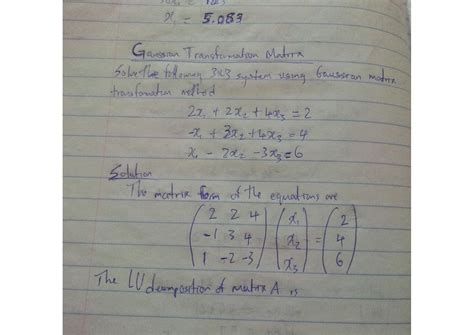 x₁ = 5.083
Gaussian Transformation Matrix
Solve the following 3x3 system using Gaussian matrix
transformation method
2x₁ + 2x₂ + 4x₃ = 2
-x₁ + 3x₂ + 4x₃ = 4
x₁ - 2x₂ - 3x₃ = 6
Solution
The matrix form of the equations are
( 2 2 4 ) ( x₁ ) = ( 2 )
( -1 3 4 ) ( x₂ ) = ( 4 )
( 1 -2 -3 ) ( x₃ ) = ( 6 )
The LU decomposition of matrix A is